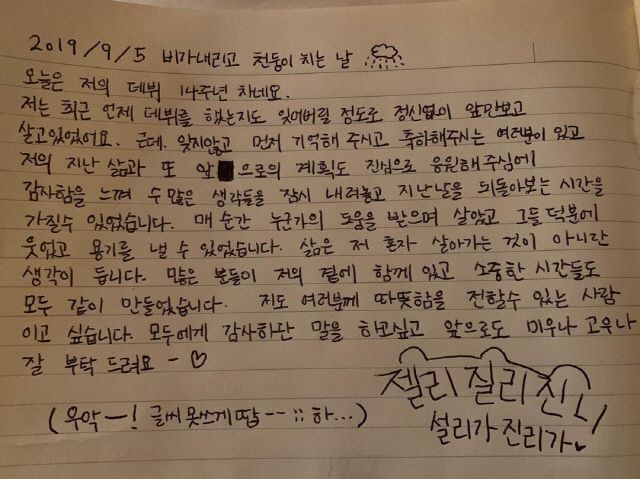 2019/9/5 비가내리고 천둥이 치는 날
오늘은 저의 데뷔 14주년 차네요.
저는 최근 언제 데뷔를 했는지도 잊어버릴 정도로 정신없이 앞만보고
살고있었어요. 근데. 잊지않고 먼저 기억해 주시고 축하해주시는 여러분이 있고
저의 지난 삶과 또 앞으로의 계획도 진심으로 응원해주심에
감사함을 느껴 수많은 생각들을 잠시 내려놓고 지난날을 뒤돌아보는 시간을
가질수 있었습니다. 매 순간 누군가의 도움을 받으며 살았고 그들 덕분에
웃었고 용기를 낼 수 있었습니다. 삶은 저 혼자 살아가는 것이 아니란
생각이 듭니다. 많은 분들이 저의 곁에 함께 있고 소중한 시간들도
모두 같이 만들었습니다. 저도 여러분께 따뜻함을 전할수 있는 사람
이고 싶습니다. 모두에게 감사하단 말을 하고싶고 앞으로도 미우나 고우나
잘 부탁 드려요 - ♡
(우악-! 글씨 못쓰게땁--;; 하...)
젤리 질리 진니
설리가 진리가♥